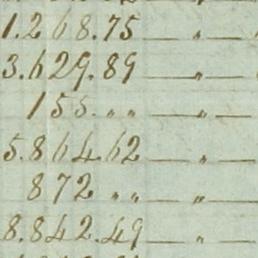 1.268.75 — " —
3.629.89 — " —
155. " " — " —
5.864.62 — " —
872 " " — " —
8.842.49 — " —